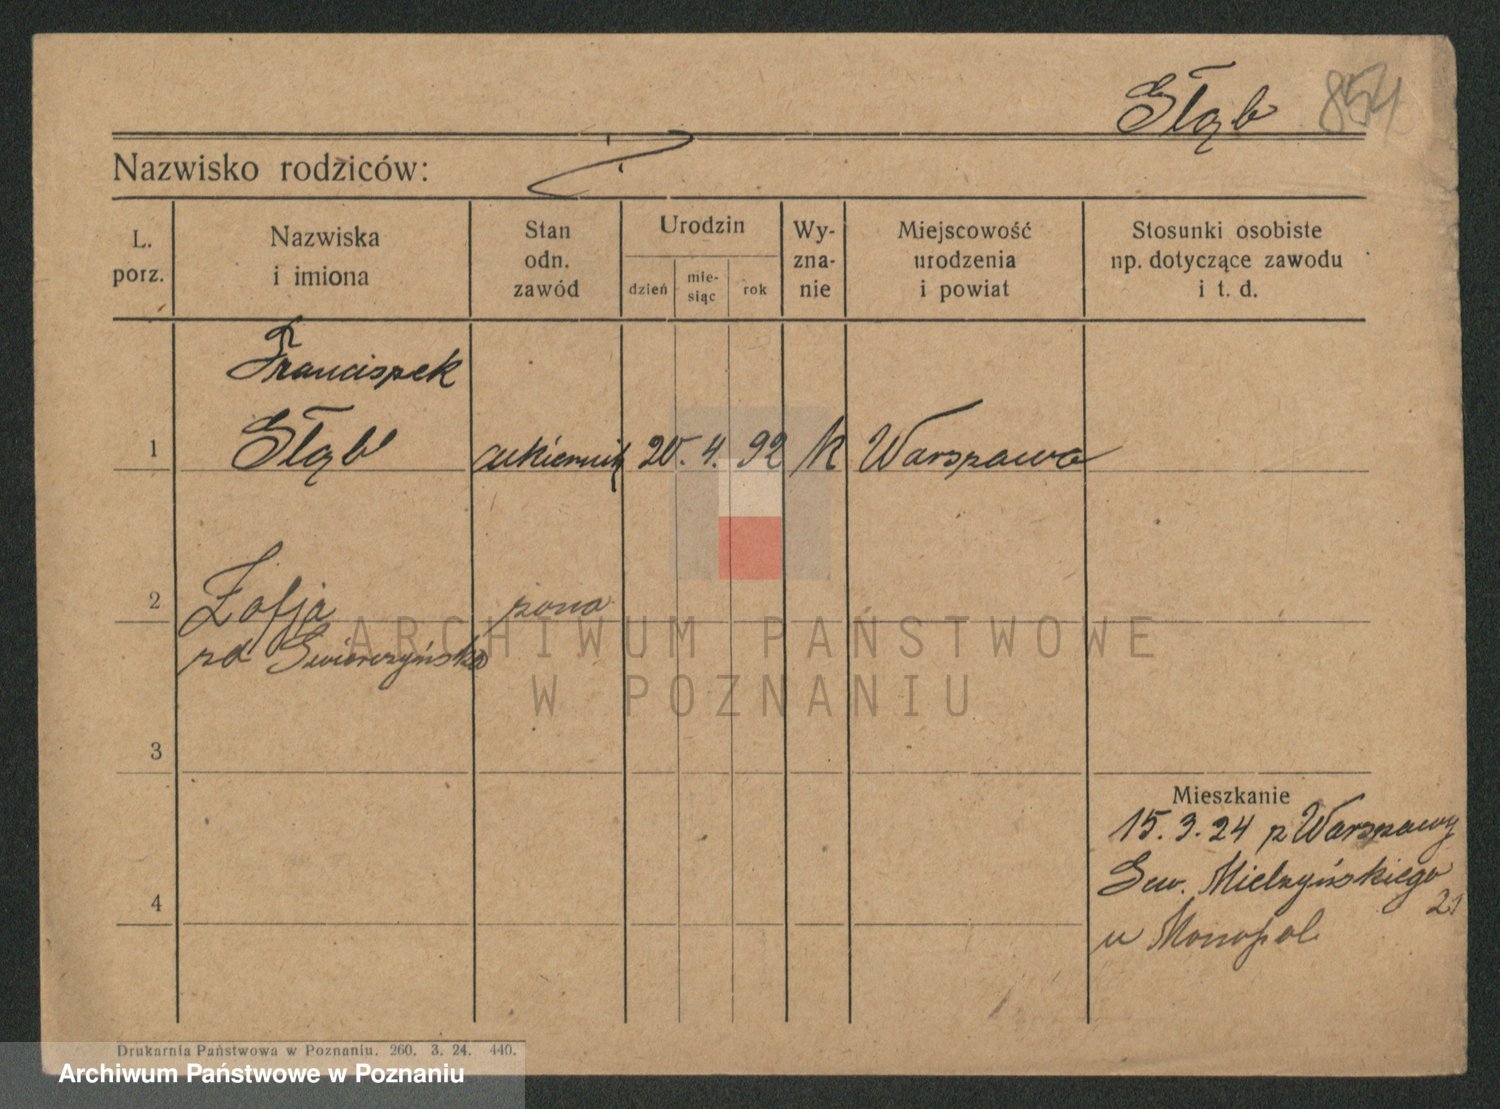 Słąb 854
Nazwisko rodziców:
L. porz.
Nazwiska i imiona
Stan odn. zawód
Urodzin
dzień
mie-siąc
rok
Wy-zna-nie
Miejscowość urodzenia i powiat
Stosunki osobiste np. dotyczące zawodu i t. d.
Franciszek
1 Słąb cukiernik 20. 4. 92 k Warszawa
2 Zofja żona
zd Świerczyńska
3
Mieszkanie
15. 3. 24 z Warszawy
Sew. Mielżyńskiego
21
4
u Monopol
ARCHIWUM PAŃSTWOWE
W POZNANIU
Drukarnia Państwowa w Poznaniu. 260. 3. 24. 440.
Archiwum Państwowe w Poznaniu